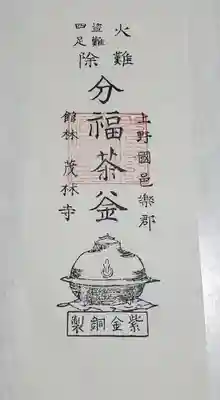 火難
盗難
四足
除
分福茶釜
上野國邑樂郡
館林 茂林寺
紫金銅製